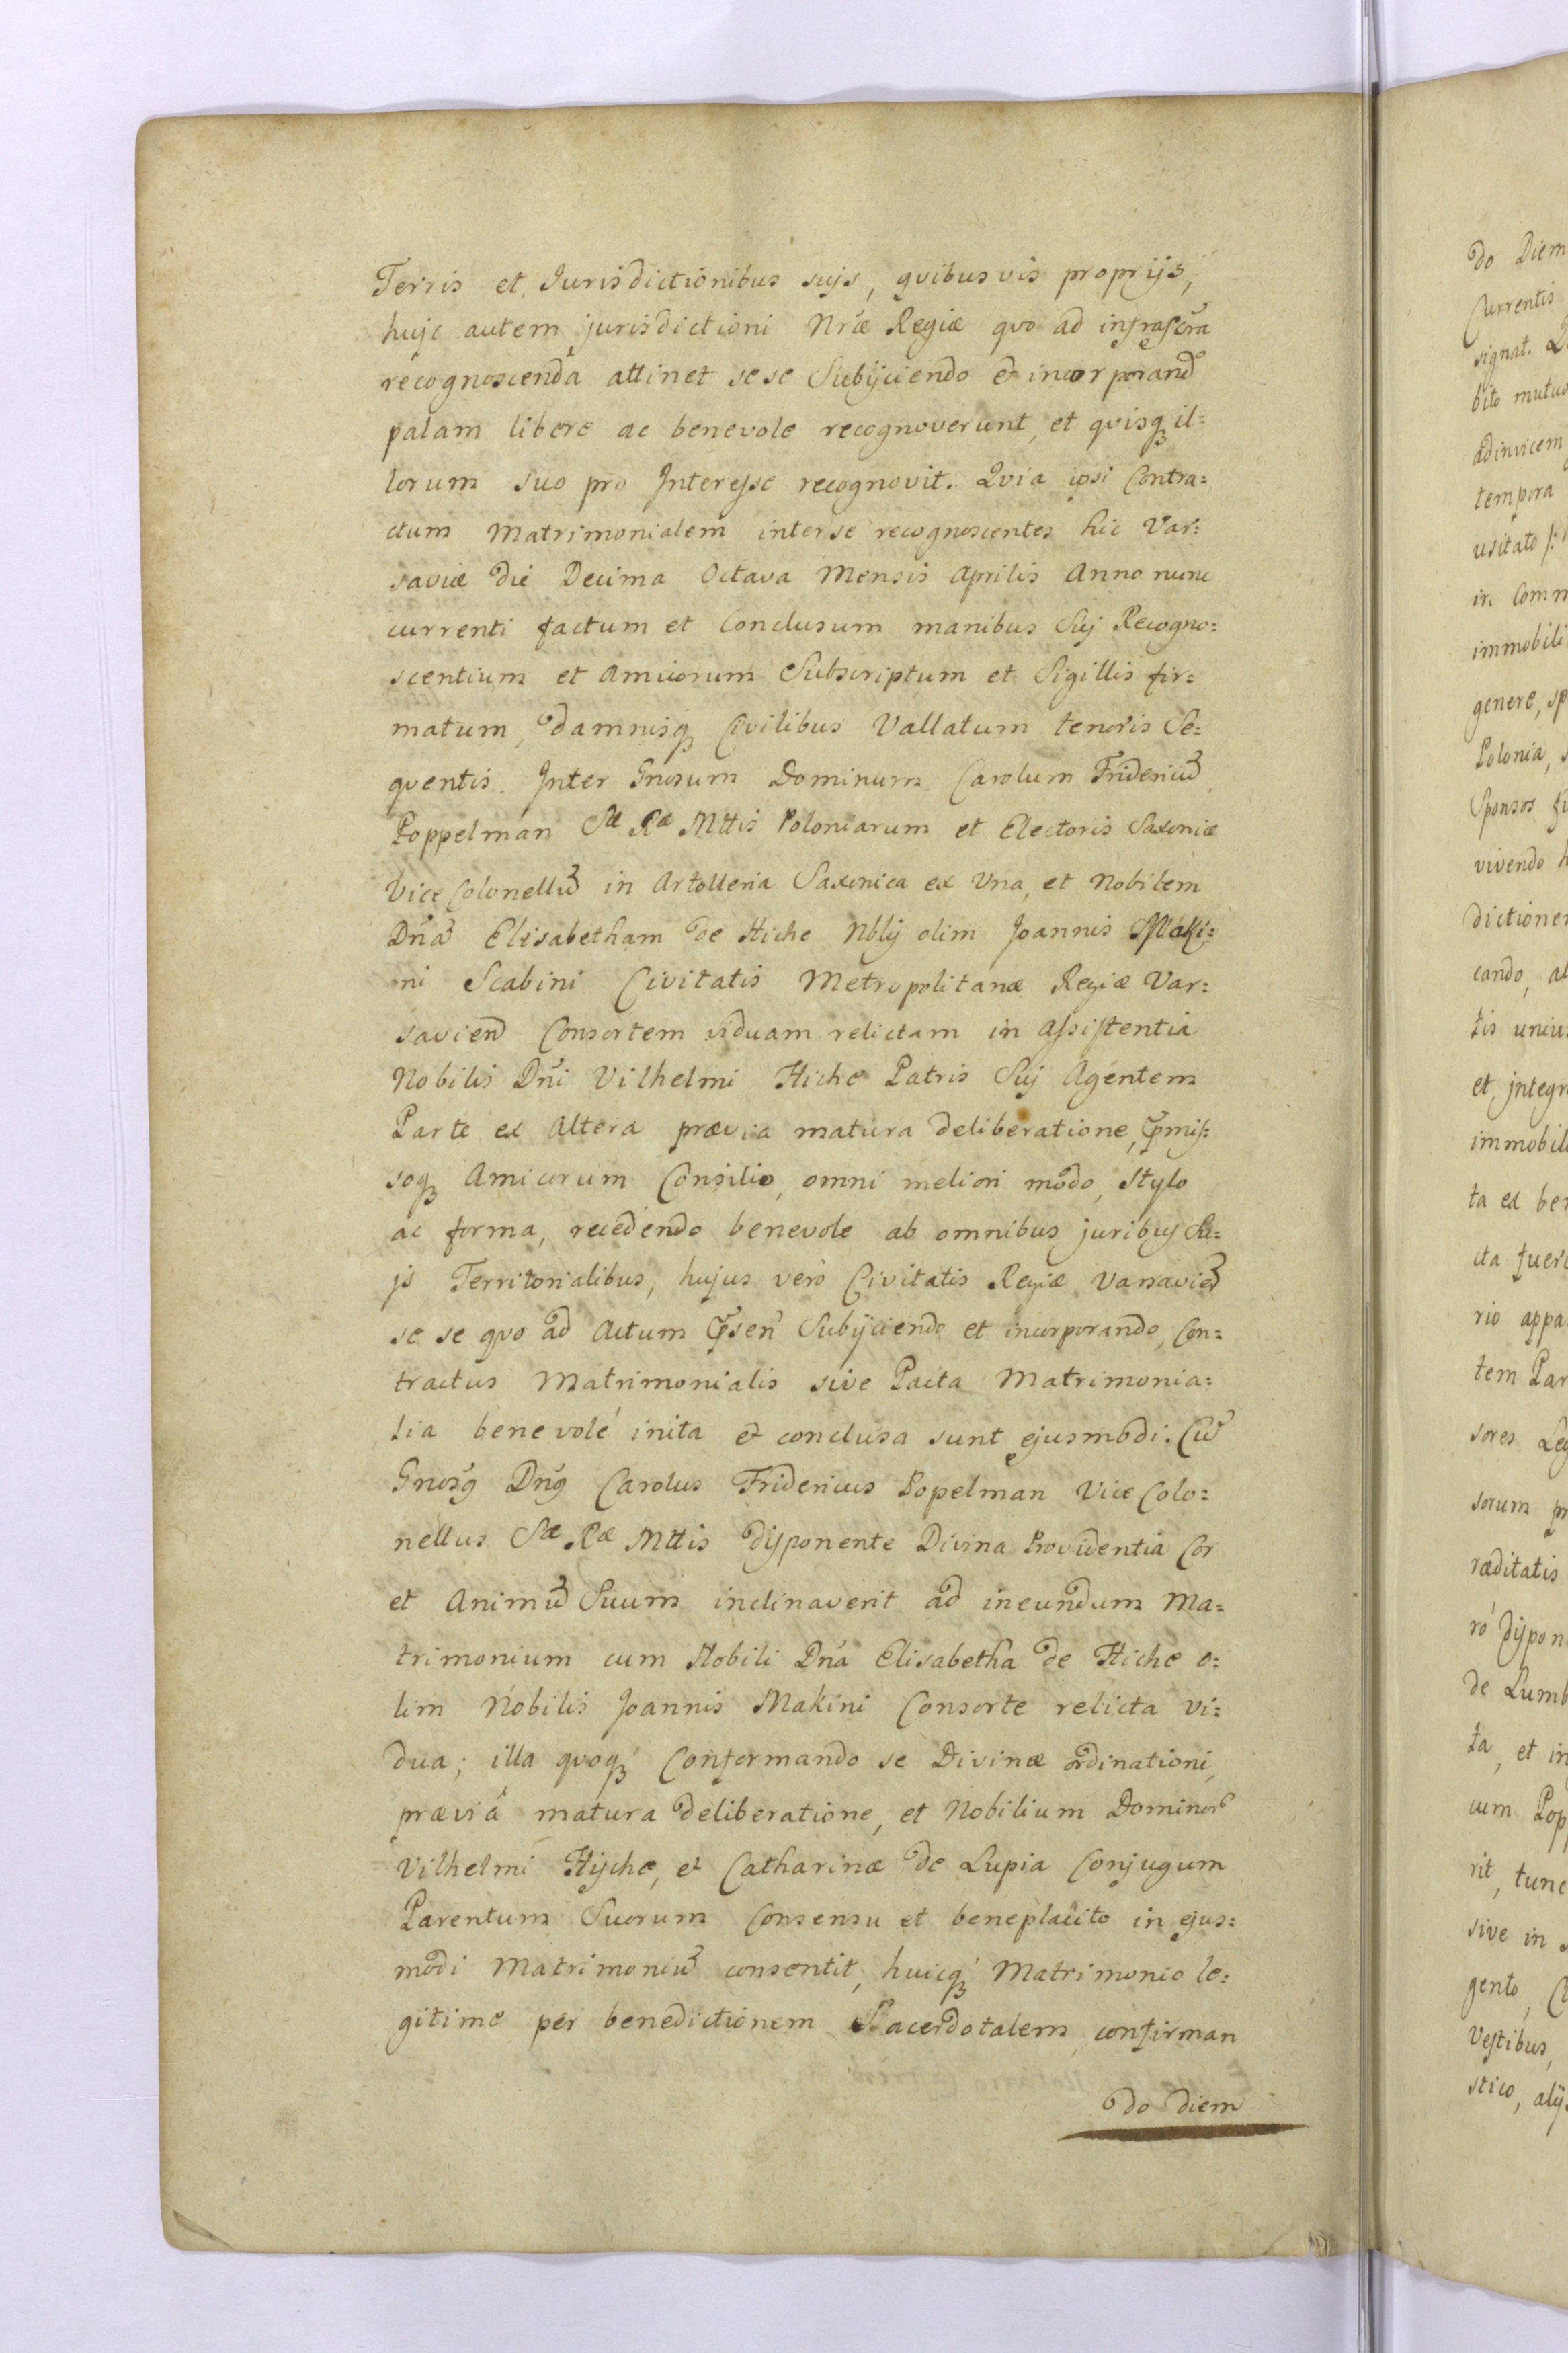 Terris et Jurisdictionibus suis, qvibusvis proprijs,
huic autem jurisdictioni Nræ Regiæ qvo ad infrascra
recognoscenda attinet sese Subijciendo et incorporand
palam libere ac benevole recognoverunt, et qvisq il=
lorum suo pro Interesse recognovit. Qvia ipsi Contra=
ctum Matrimonialem inter se recognoscentes hic Var=
saviæ die Decima Octava Mensis Aprilis Anno nunc
currenti factum et Conclusum manibus Suj Recogno=
scentium et Amicorum Subscriptum et Sigillis fir=
matum, damnisq Civilibus Vallatum tenoris Se=
qventis. Inter Gnosum Dominum Carolum Fridericu
Poppelman Sæ Ræ Mttis Poloniarum et Electoris Saxoniæ
Vice Colonellu in Artolleria Saxonica ex Una, et Nobilem
Dna Elisabetham de Hiche Nblij olim Joannis Maki=
ni Scabini Civitatis Metropolitanæ Regiæ Var=
savien Consortem viduam relictam in Assistentia
Nobilis Dni Vilhelmi Hiche Patris Suj Agentem
Parte ex Altera prævia matura deliberatione, pmis=
soq Amicorum Consilio, omni meliori modo, Stylo
ac forma, recedendo benevole ab omnibus juribus Su=
js Territorialibus, hujus vero Civitatis Regiæ Varsavien
se se qvo ad Actum psen Subijciendo et incorporando, Con=
tractus Matrimonialis sive Pacta Matrimonia=
lia benevolé inita et conclusa sunt ejusmodi. Cu
Gnosg Dng Carolus Fridericus Popelman Vice Colo=
nellus Sæ Ræ Mttis disponente Divina Providentia Cor
et Animu Suum inclinaverit ad ineundum Ma=
trimonium cum Nobili Dna Elisabetha de Hiche o=
lim Nobilis Joannis Makini Consorte relicta vi=
dua; illa qvoq Conformando se Divinæ ordinationi,
præviâ matura deliberatione, et Nobilium Dominor
Vilhelmi Hische, et Catharinæ de Lupia Conjugum
Parentum Suorum Consensu et beneplacito in ejus=
modi Matrimoniu consentit, huicq Matrimonio le=
gitime per benedictionem Sacerdotalem confirman
do diem
do Diem
Currentis
signat.
bito mutuo
adinvicem
tempora
usitato
in Comm
immobili
genere, sp
Polonia,
Sponsos
vivendo
dictionem
cando, al
tis unius
et integr
immobili
ta ex ben
cta fuer
rio appa
tem Par
sores Leg
sorum pr
ræditatis
ró dispon
de Lumb
ta, et in
cum Pop
rit, tunc
sive in
gento,
Vestibus,
stico, alij